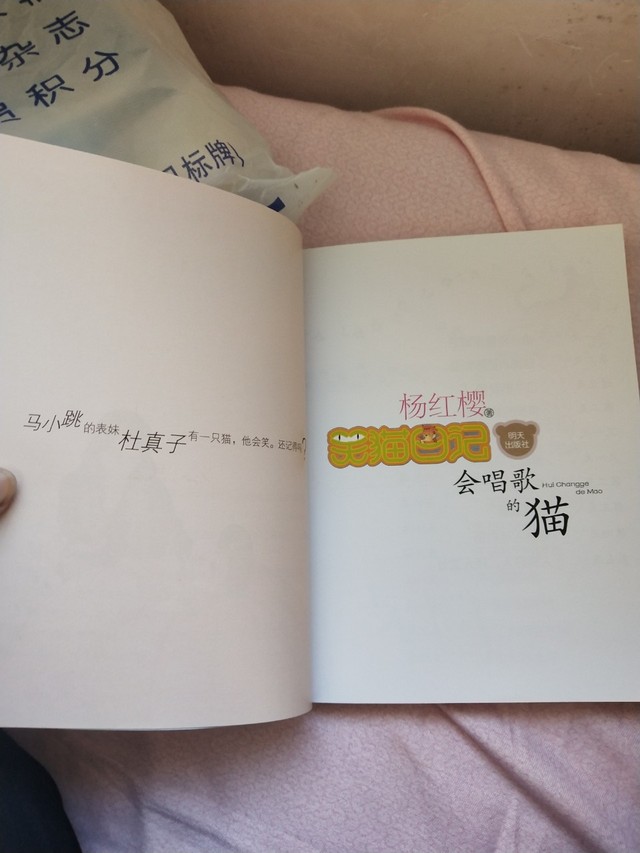 杂志
积分
标牌)
马小跳的表妹杜真子有一只猫，他会笑。还记得吗?
杨红樱 著
笑猫日记
明天
出版社
会唱歌
Hui Changge
的猫
de Mao